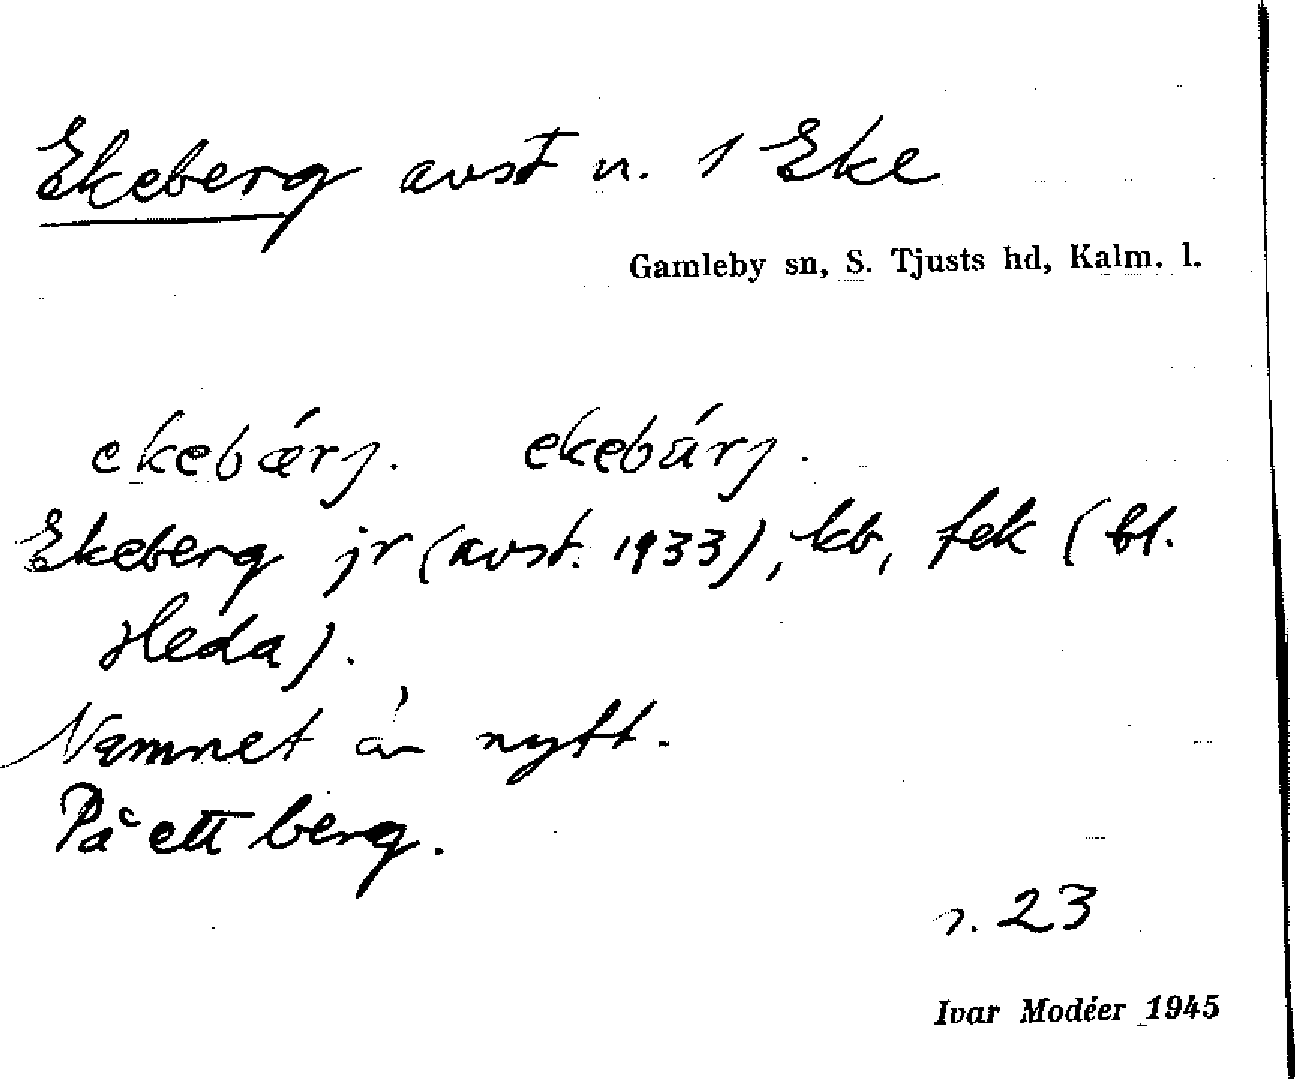 Ekeberg avst n. 1 Eke
Gamleby sn, S. Tjusts hd, Kalm. l.
ekebǽrj. ekebárj.
Ekeberg jr (avst. 1933), kb, fek (bl.
Heda).
Namnet är nytt.
På ett berg.
s. 23
Ivar Modéer 1945